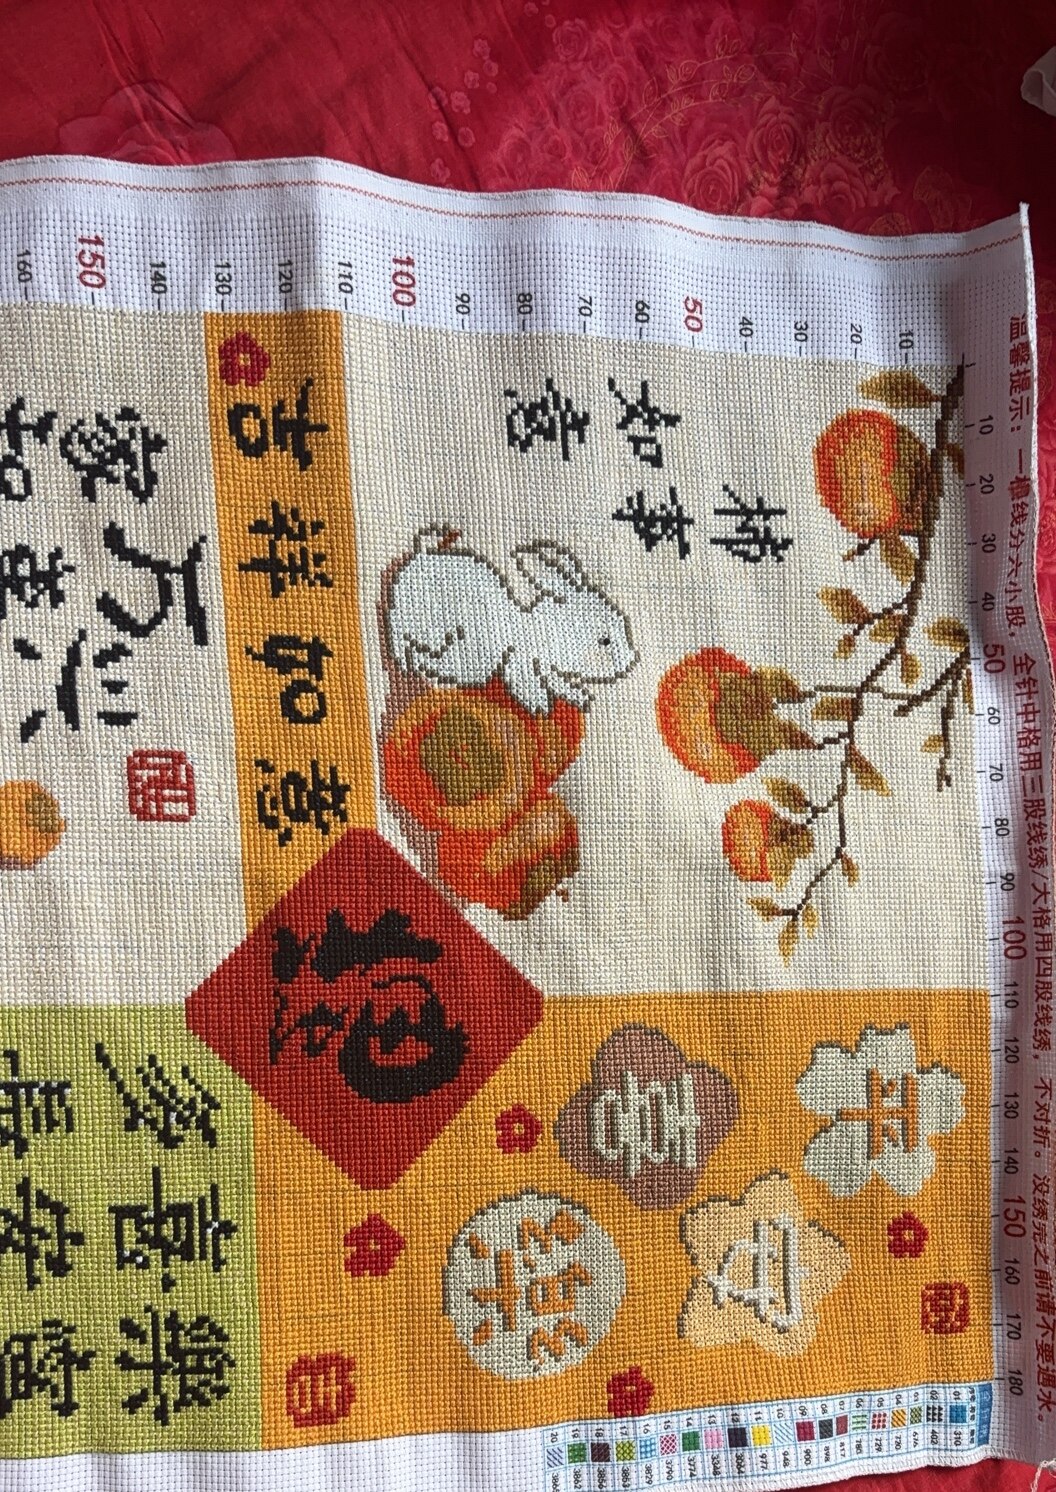 温馨提示：一根线分六小股，全针中格用三股线绣/大格用四股线绣，不对折。没绣完之前请不要遇水。
10 20 30 40 50 60 70 80 90 100 110 120 130 140 150 160 170 180
10
20
30
40
50
60
70
80
90
100
110
120
130
140
150
160
柿事
如意
平
安
喜
樂
吉祥如意
家和
万事
兴
多喜樂
長安寧
01 310
02 402